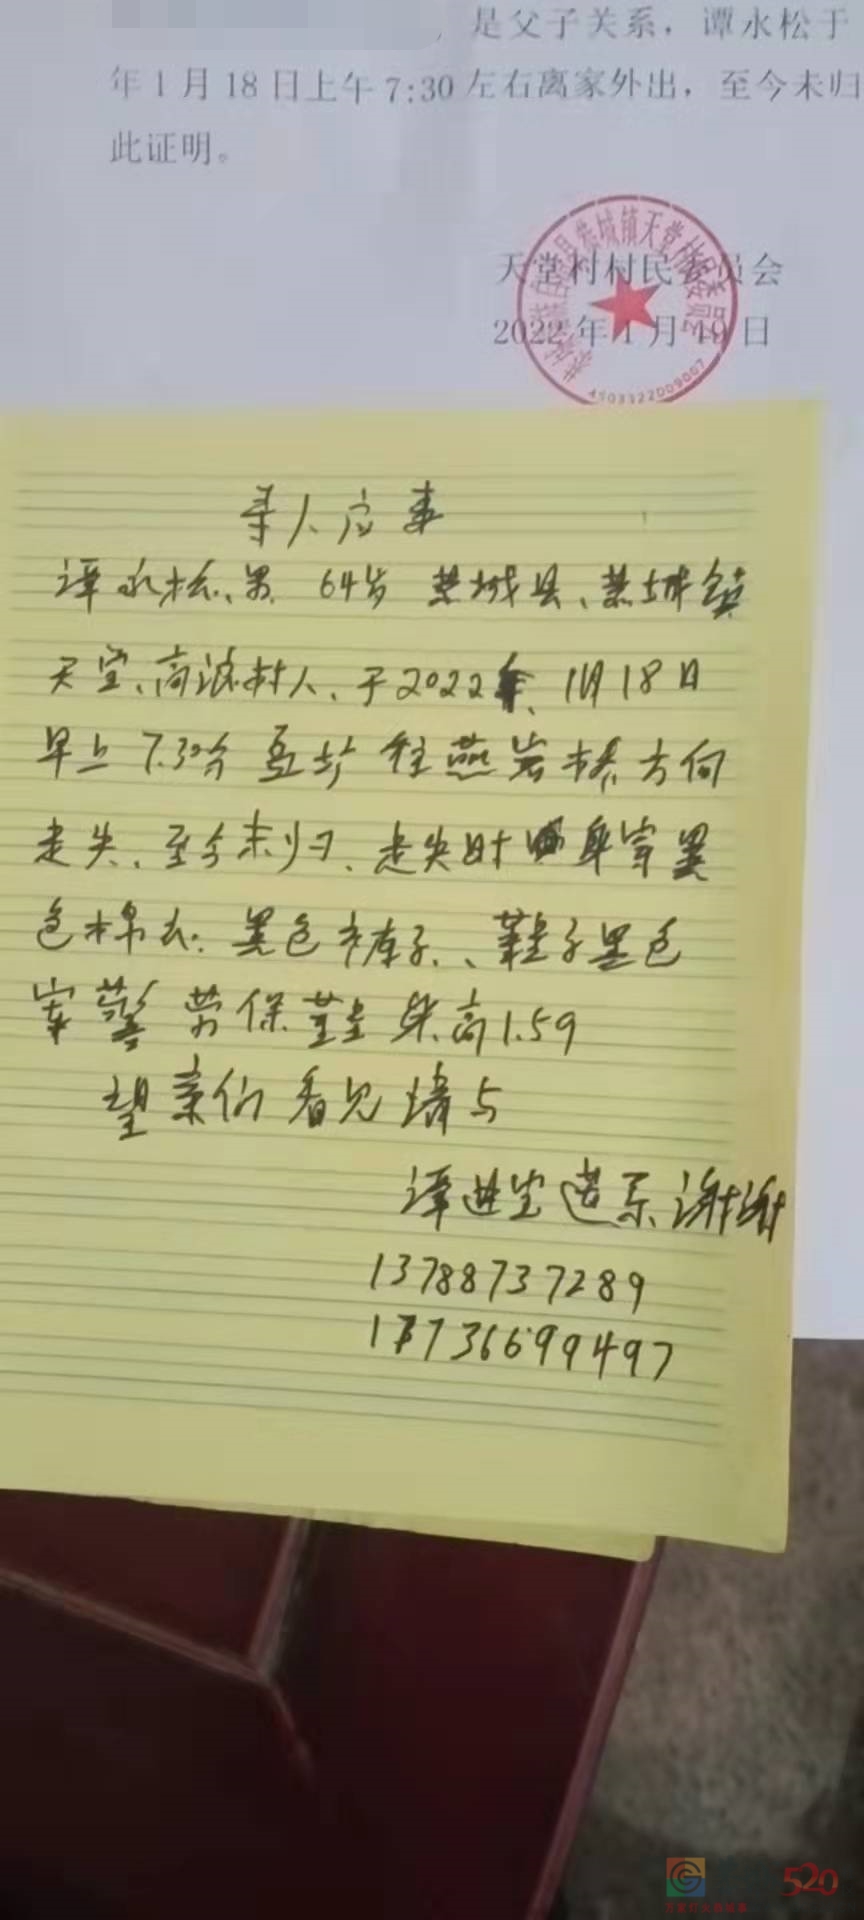 是父子关系，谭永松于
年1月18日上午7:30左右离家外出，至今未归
此证明。
天堂村村民委员会
2022年1月19日
4503322009007
寻人启事
谭永松、男 64岁 恭城县、恭城镇
天堂、高浪村人、于2022年、1月18日
早上7.30分 步 往燕岩桥方向
走失、至今未归、走失时 身穿黑
色棉衣: 黑色裤子、、鞋子黑色
劳保鞋 身高1.59
望亲们看见请与
谭进宝 联系 谢谢
13788737289
17736699497
520